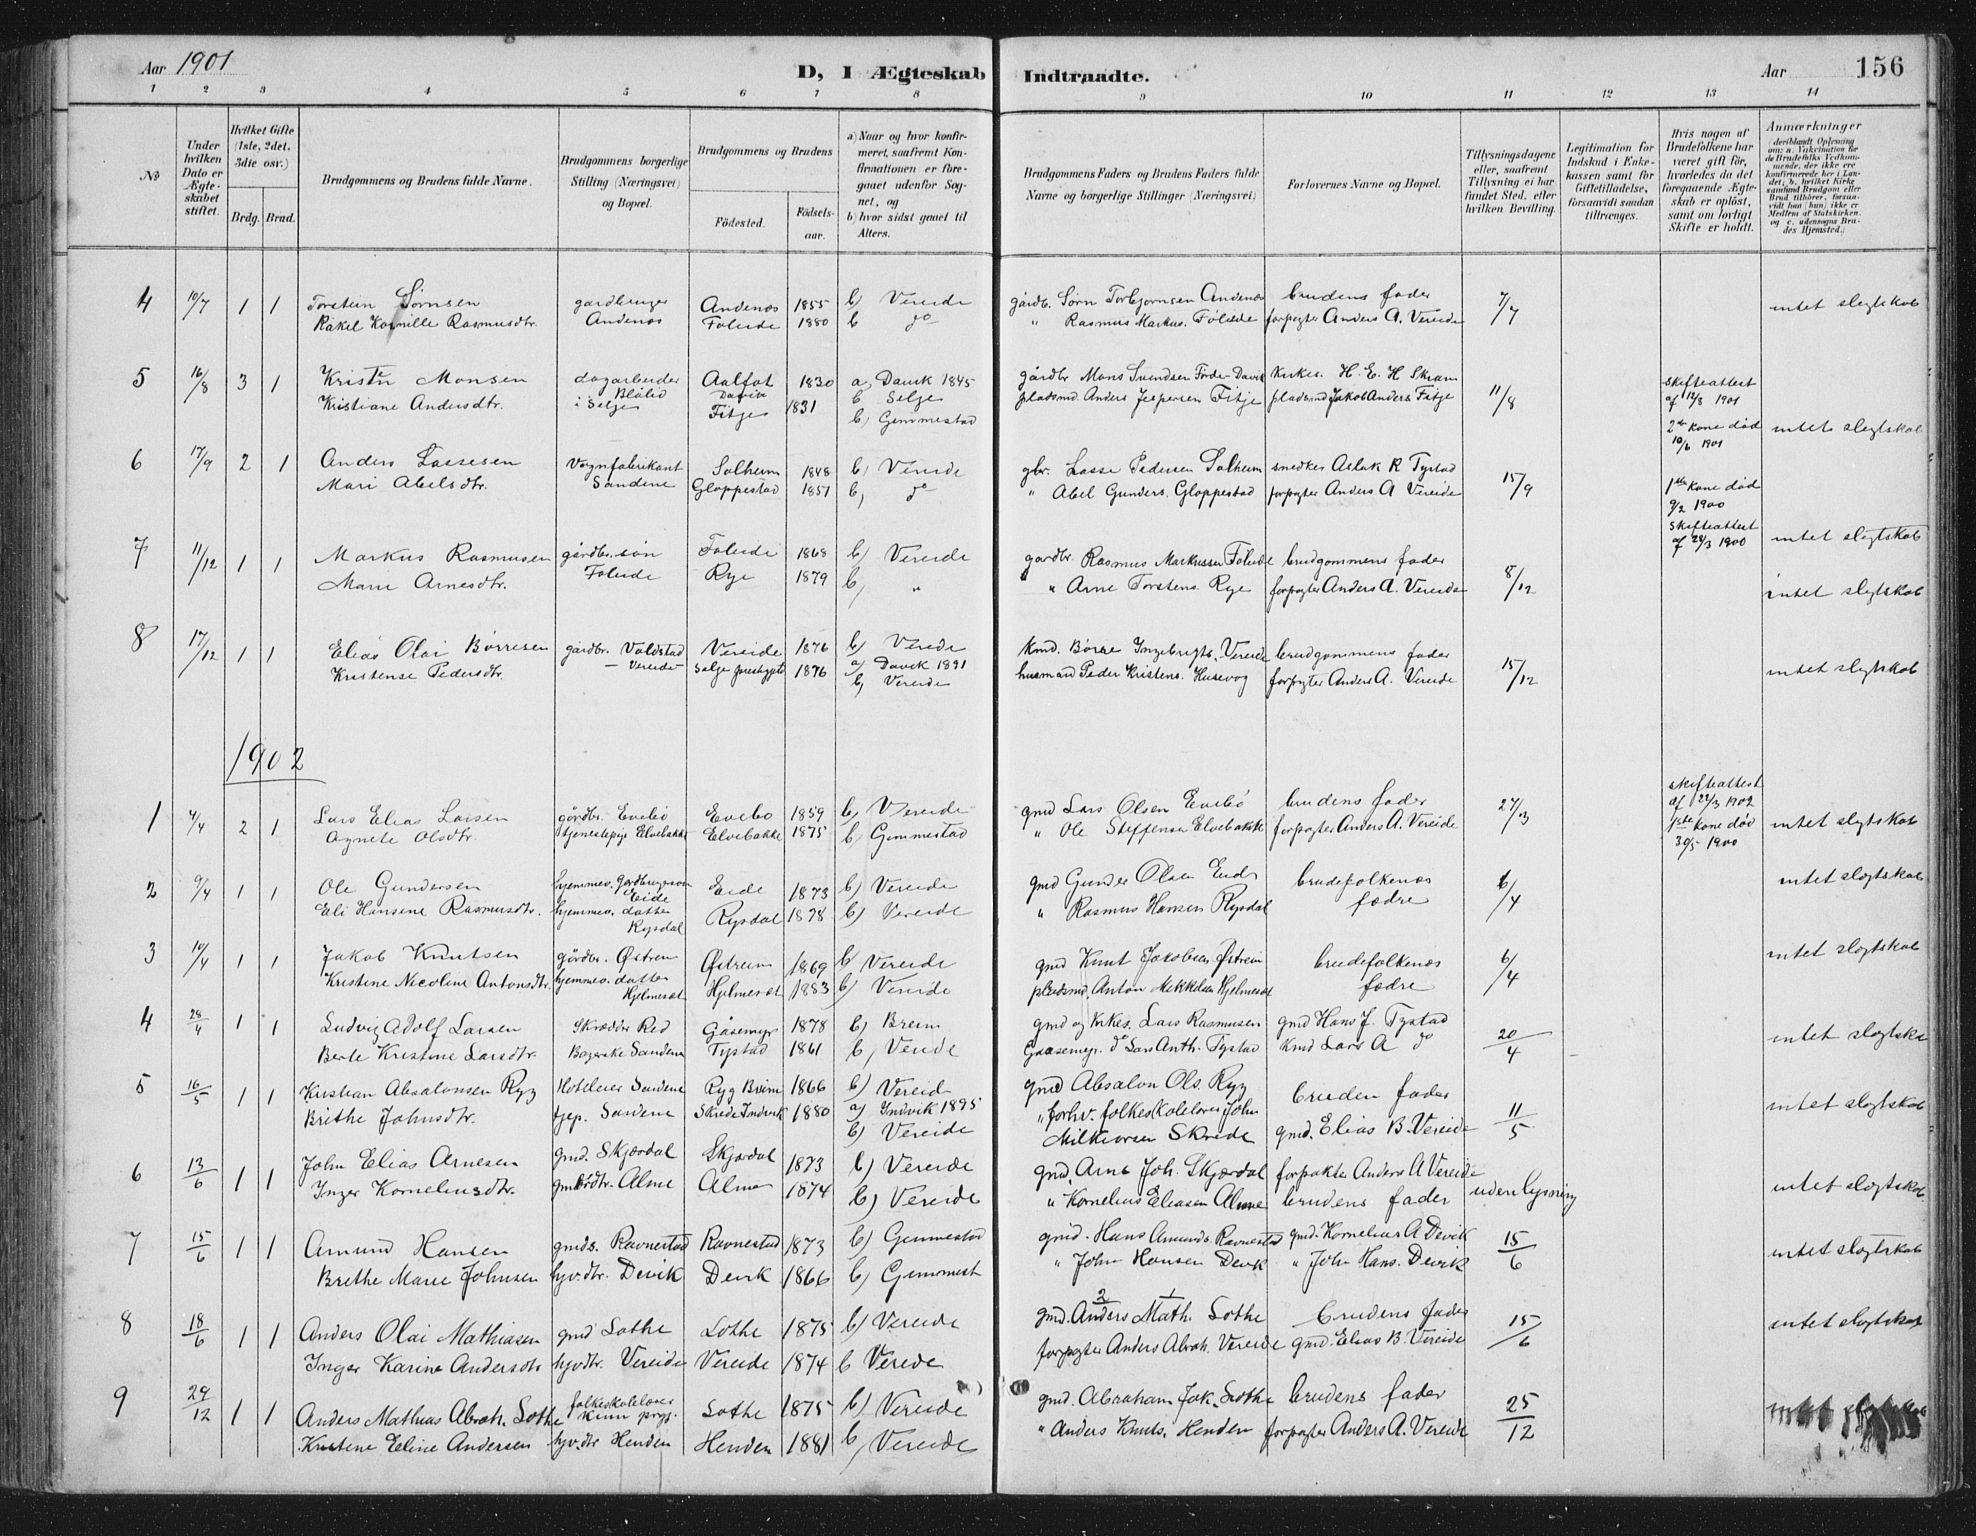 Aar 1901
D, I Ægteskab Indtraadte.
Aar 156
1 2 3 4 5 6 7 8 9 10 11 12 13 14
No
Under hvilken Dato er Ægteskabet stiftet.
Hvilket Gifte (1ste, 2det, 3die osv.)
Brdg. Brud.
Brudgommens og Brudens fulde Navne.
Brudgommens borgerlige Stilling (Næringsvei) og Bopæl.
Brudgommens og Brudens
Fødested.
Fødselsaar.
a) Naar og hvor konfirmeret, saafremt Konfirmationen er foregaaet udenfor Sognet, og
b) hvor sidst gaaet til Alters.
Brudgommens Faders og Brudens Faders fulde Navne og borgerlige Stillinger (Næringsvei)
Forlovernes Navne og Bopæl.
Tillysningsdagene eller, saafremt Tillysning ei har fundet Sted, efter hvilken Bevilling.
Legitimation for Indskud i Enkekassen samt for Giftetilladelse, forsaavidt saadan tiltrænges.
Hvis nogen af Brudefolkene har været gift før, hvorledes da det foregaaende Ægteskab er opløst, samt om lovligt Skifte er holdt.
Anmærkninger (deriblandt Oplysning om: a. Vakcination for de Brudefolks Vedkommende, der ikke ere konfirmerede her i Landet; b. hvilket Kirkesamfund Brudgom eller Brud tilhører, forsaavidt han (hun) ikke er Medlem af Statskirken, og c. udensogns Brudes Hjemsted.)
4 10/7 1 1 Torstein Sørnsen gardbruger Andenæs 1855 b) Vereide gårdb. Sørn Torbjørnsen Andenæs brudens fader 7/7 intet slegtskab
Rakel Kornille Rasmusdtr. Andenæs Føleide 1880 b do " Rasmus Markus. Føleide forpagter Anders A. Vereide
5 16/8 3 1 Kristen Monsen dagarbeider Aalfot 1830 a, Davik 1845 gårdbr Mons Svendsen Førde Davik Kirkes. H. E. H Skram 11/8 skifteattest
Kristiane Andersdtr. Blålid i Selje Davik Fitje 1831 b Selje pladsmd. Anders Jespersen Fitje pladsmd Jakob Anders. Fitje af 12/8 1901
b) Gemmestad 2den kone død intet slegtskab
10/6 1901
6 17/9 2 1 Anders Lassesen Vognfabrikant Solheim 1848 b) Vereide gbr. Lasse Pedersen Solheim snedker Aslak R. Tystad 15/9
Mari Abelsdtr. Sandene Gloppestad 1851 b, do " Abel Gunders. Gloppestad forpagter Anders A Vereide 1ste kone død
9/2 1900
skifteattest
af 24/3 1900 intet slegtskab
7 11/12 1 1 Markus Rasmusen gårdbr. søn Føleide 1868 b) Vereide gardbr. Rasmus Markussen Føleide brudgommens fader 8/12
Marie Arnesdtr. Føleide Rye 1879 b, " " Arne Torstens. Rye forpagter Anders A. Vereide intet slegtskab
8 17/12 1 1 Elias Olai Børresen gårdbr. Voldstad Vereide 1876 b) Vereide kmd. Børre Ingebrigts. Vereide brudgommens fader 15/12 intet slegtskab
Kristense Pedersdtr. – Vereide – Selje præstegjeld 1876 a) Davik 1891 husmand Peder Kristens. Husevåg forpagter Anders A. Vereide
b, Vereide
1902
1 4/4 2 1 Lars Elias Larsen gårdbr. Evebø Evebø 1859 b, Vereide gmd Lars Olsen Evebø brudens fader 27/3 skifteattest
Agnete Olsdtr tjenestepige Elvebakke Elvebakke 1875 b, Gemmestad " Ole Steffensen Elvebakke forpagter Anders A. Vereide af 22/3 1902
1ste kone død intet slegtskab
30/5 1900
2 9/4 1 1 Ole Gundersen hjemmev. gardbrugersøn Eide Eide 1873 b) Vereide gmd Gunder Olsen Eide brudefolkenes 6/4 intet slegtskab
Eli Hansine Rasmusdtr. hjemmev. datter Rysdal Rysdal 1878 b) Vereide " Rasmus Hansen Rysdal fædre
3 10/4 1 1 Jakob Knutsen gårdbr. Østrem Østreim 1869 b) Vereide gmd Knut Jakobsen Østrein brudefolkenes 6/4 intet slegtskab
Kristine Nicoline Antonsdtr. hjemmev. datter Hjelmeset Hjelmeset 1883 b) Vereide pladsmd. Anton Mikkelsen Hjelmeset fædre
4 28/4 1 1 Ludvig Adolf Larsen Skrædder Red Gåsemyr 1878 b) Breim gmd og kirkes. Lars Rasmusen gmd Hans J. Tystad 20/4 intet slegtskab
Berte Kristine Larsdtr. Bagerske Sandene Tystad 1861 b, Vereide Gaasemyr. do Lars Anth. Tystad kmd Lars A do
5 16/5 1 1 Kristian Absalonsen Ryg Hotteleier Sandene Ryg Breim 1866 b) Vereid gmd Absalon Ols. Ryg bruden fader 11/5 intet slegtskab
Brithe Johnsdtr. tjep. Sandene Skrede Indvik 1880 a) Indvik 1895 " forhv. folkeskolelærer John
b) Vereide Milkiorsen Skrede gmd. Elias B. Vereide
6 13/6 1 1 John Elias Arnesen gmd. Skjærdal Skjærdal 1873 b) Vereide gmd. Arne Joh. Skjærdal forpakte Anders A Vereide uden lysning intet slegtskab
Inger Korneliusdtr. gmdsdtr. Alme Alme 1874 b) Vereide " Kornelius Eliasen Alme brudens fader
7 15/6 1 1 Amund Hansen gmds. Ravnestad Ravnestad 1873 b) Gemmestad gmd. Hans Amunds. Ravnestad gmd. Kornelius A Devik 15/6 intet slegtskab
Brithe Marie Johnsen hjv.dtr. Devik Devik 1866 b) Gemmest " John Hansen Devik " John Hans. Devik
8 18/6 1 1 Anders Olai Mathiasen gmd Lothe Lothe 1875 b) Vereide gmd. Anders 2 Math. 1 Lothe brudens fader 15/6 intet slegtskab
Inger Karine Andersdtr hjv.dtr. Vereide Vereide 1874 b Vereide forpagter Anders Abrah. Vereide gmd. Elias B. Vereide
9 29/12 1 1 Anders Mathias Abrah. Lothe folkeskolelærer Kinn prgj. Lothe 1875 b) Vereide gmd. Abraham Jak. Lothe brudens fader 25/12 intet
Kristine Eline Andersen hjv.dtr Henden Henden 1881 b, Vereide " Anders Knuts. Henden forpagter Anders A. Vereide